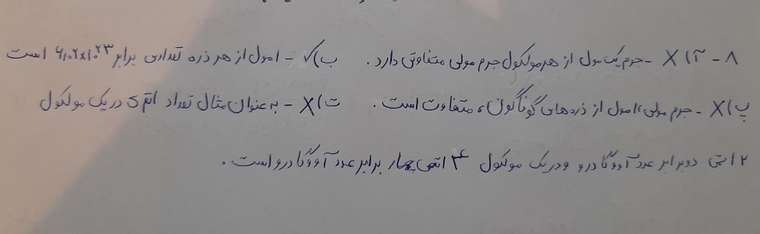 ۸ - آ) X - جرم یک مول از هر مولکول جرم مولی متفاوتی دارد. ب) ✓ - ۱ مول از هر ذره تعدادی برابر ۶٫۰۲×۱۰^۲۳ است
پ) X - جرم مولی ۱ مول از ذره‌های گوناگون، متفاوت است. ت) X - به عنوان مثال تعداد اتم در یک مولکول
۲ اتمی دو برابر عدد آووگادرو و در یک مولکول ۴ اتمی چهار برابر عدد آووگادرو است.